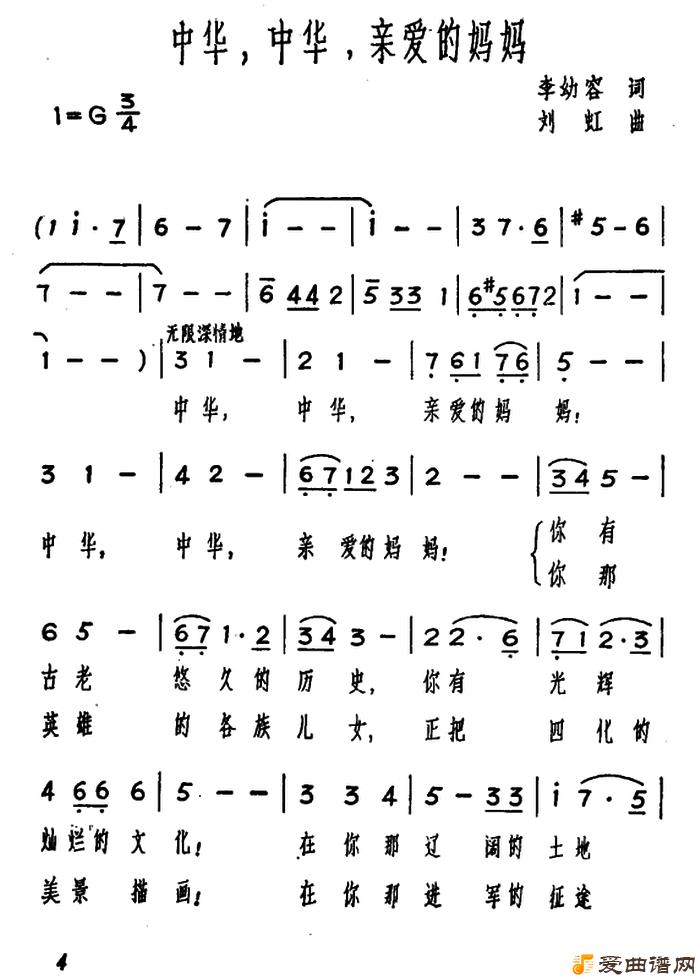 中华，中华，亲爱的妈妈
李幼容 词
1=G 3/4
刘虹 曲
(1 i·7|6-7|i--|i--|37·6|#5-6|
7--|7--|6 44 2|5 33 1|6#5672|1--|
无限深情地
1--)|31-|21-|7 61 76|5--|
中华， 中华， 亲爱的妈 妈！
31-|42-|67123|2--|345-|
中华， 中华， 亲 爱的妈妈！ 你有
你那
65-|67 1·2|343-|22·6|71 2·3|
古老 悠久的历史，你有 光辉
英雄 的各族儿女，正把 四化的
4 66 6|5--|334|5-33|i 7·5|
灿烂的文化！ 在你那辽阔的土地
美景 描画！ 在你那进 军的征途
4
爱曲谱网